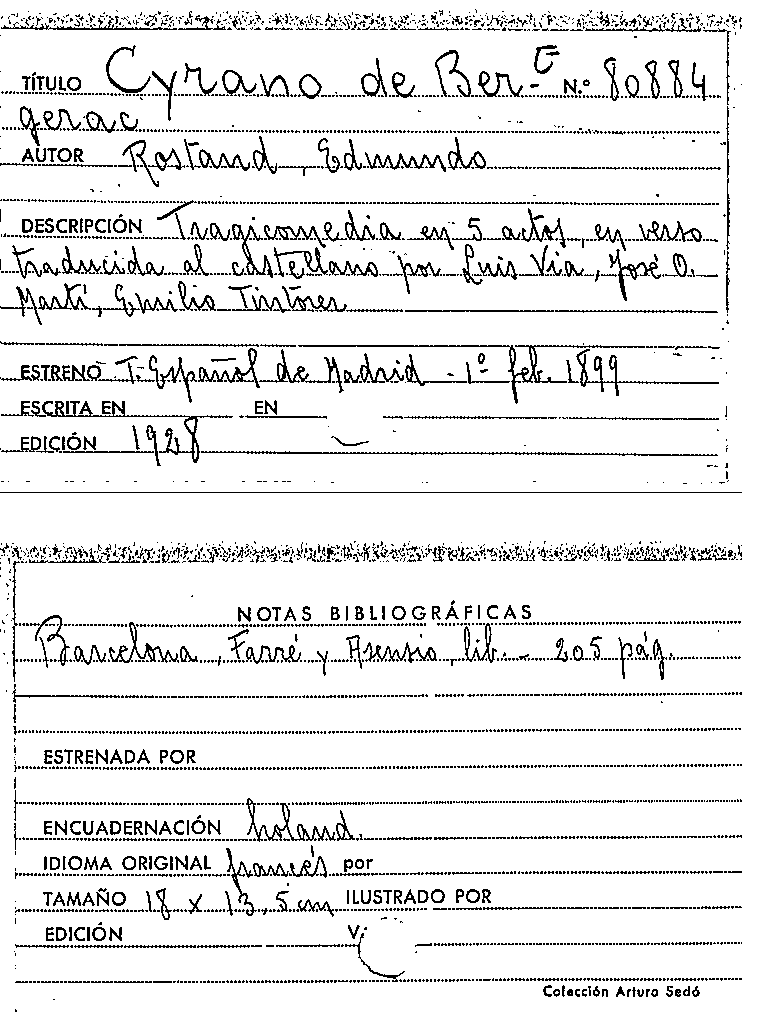 TÍTULO Cyrano de Ber- N.º 80884
gerac
AUTOR Rostand, Edmundo
DESCRIPCIÓN Tragicomedia en 5 actos, en verso
traducida al castellano por Luis Via, José O.
Martí, Emilio Tintorer
ESTRENO T. Español de Madrid - 1º feb. 1899
ESCRITA EN EN
EDICIÓN 1928
NOTAS BIBLIOGRÁFICAS
Barcelona, Farré y Asensio, lib. - 205 pág.
ESTRENADA POR
ENCUADERNACIÓN holand.
IDIOMA ORIGINAL francés por
TAMAÑO 18 x 13,5 cm ILUSTRADO POR
EDICIÓN V.
Colección Arturo Sedó